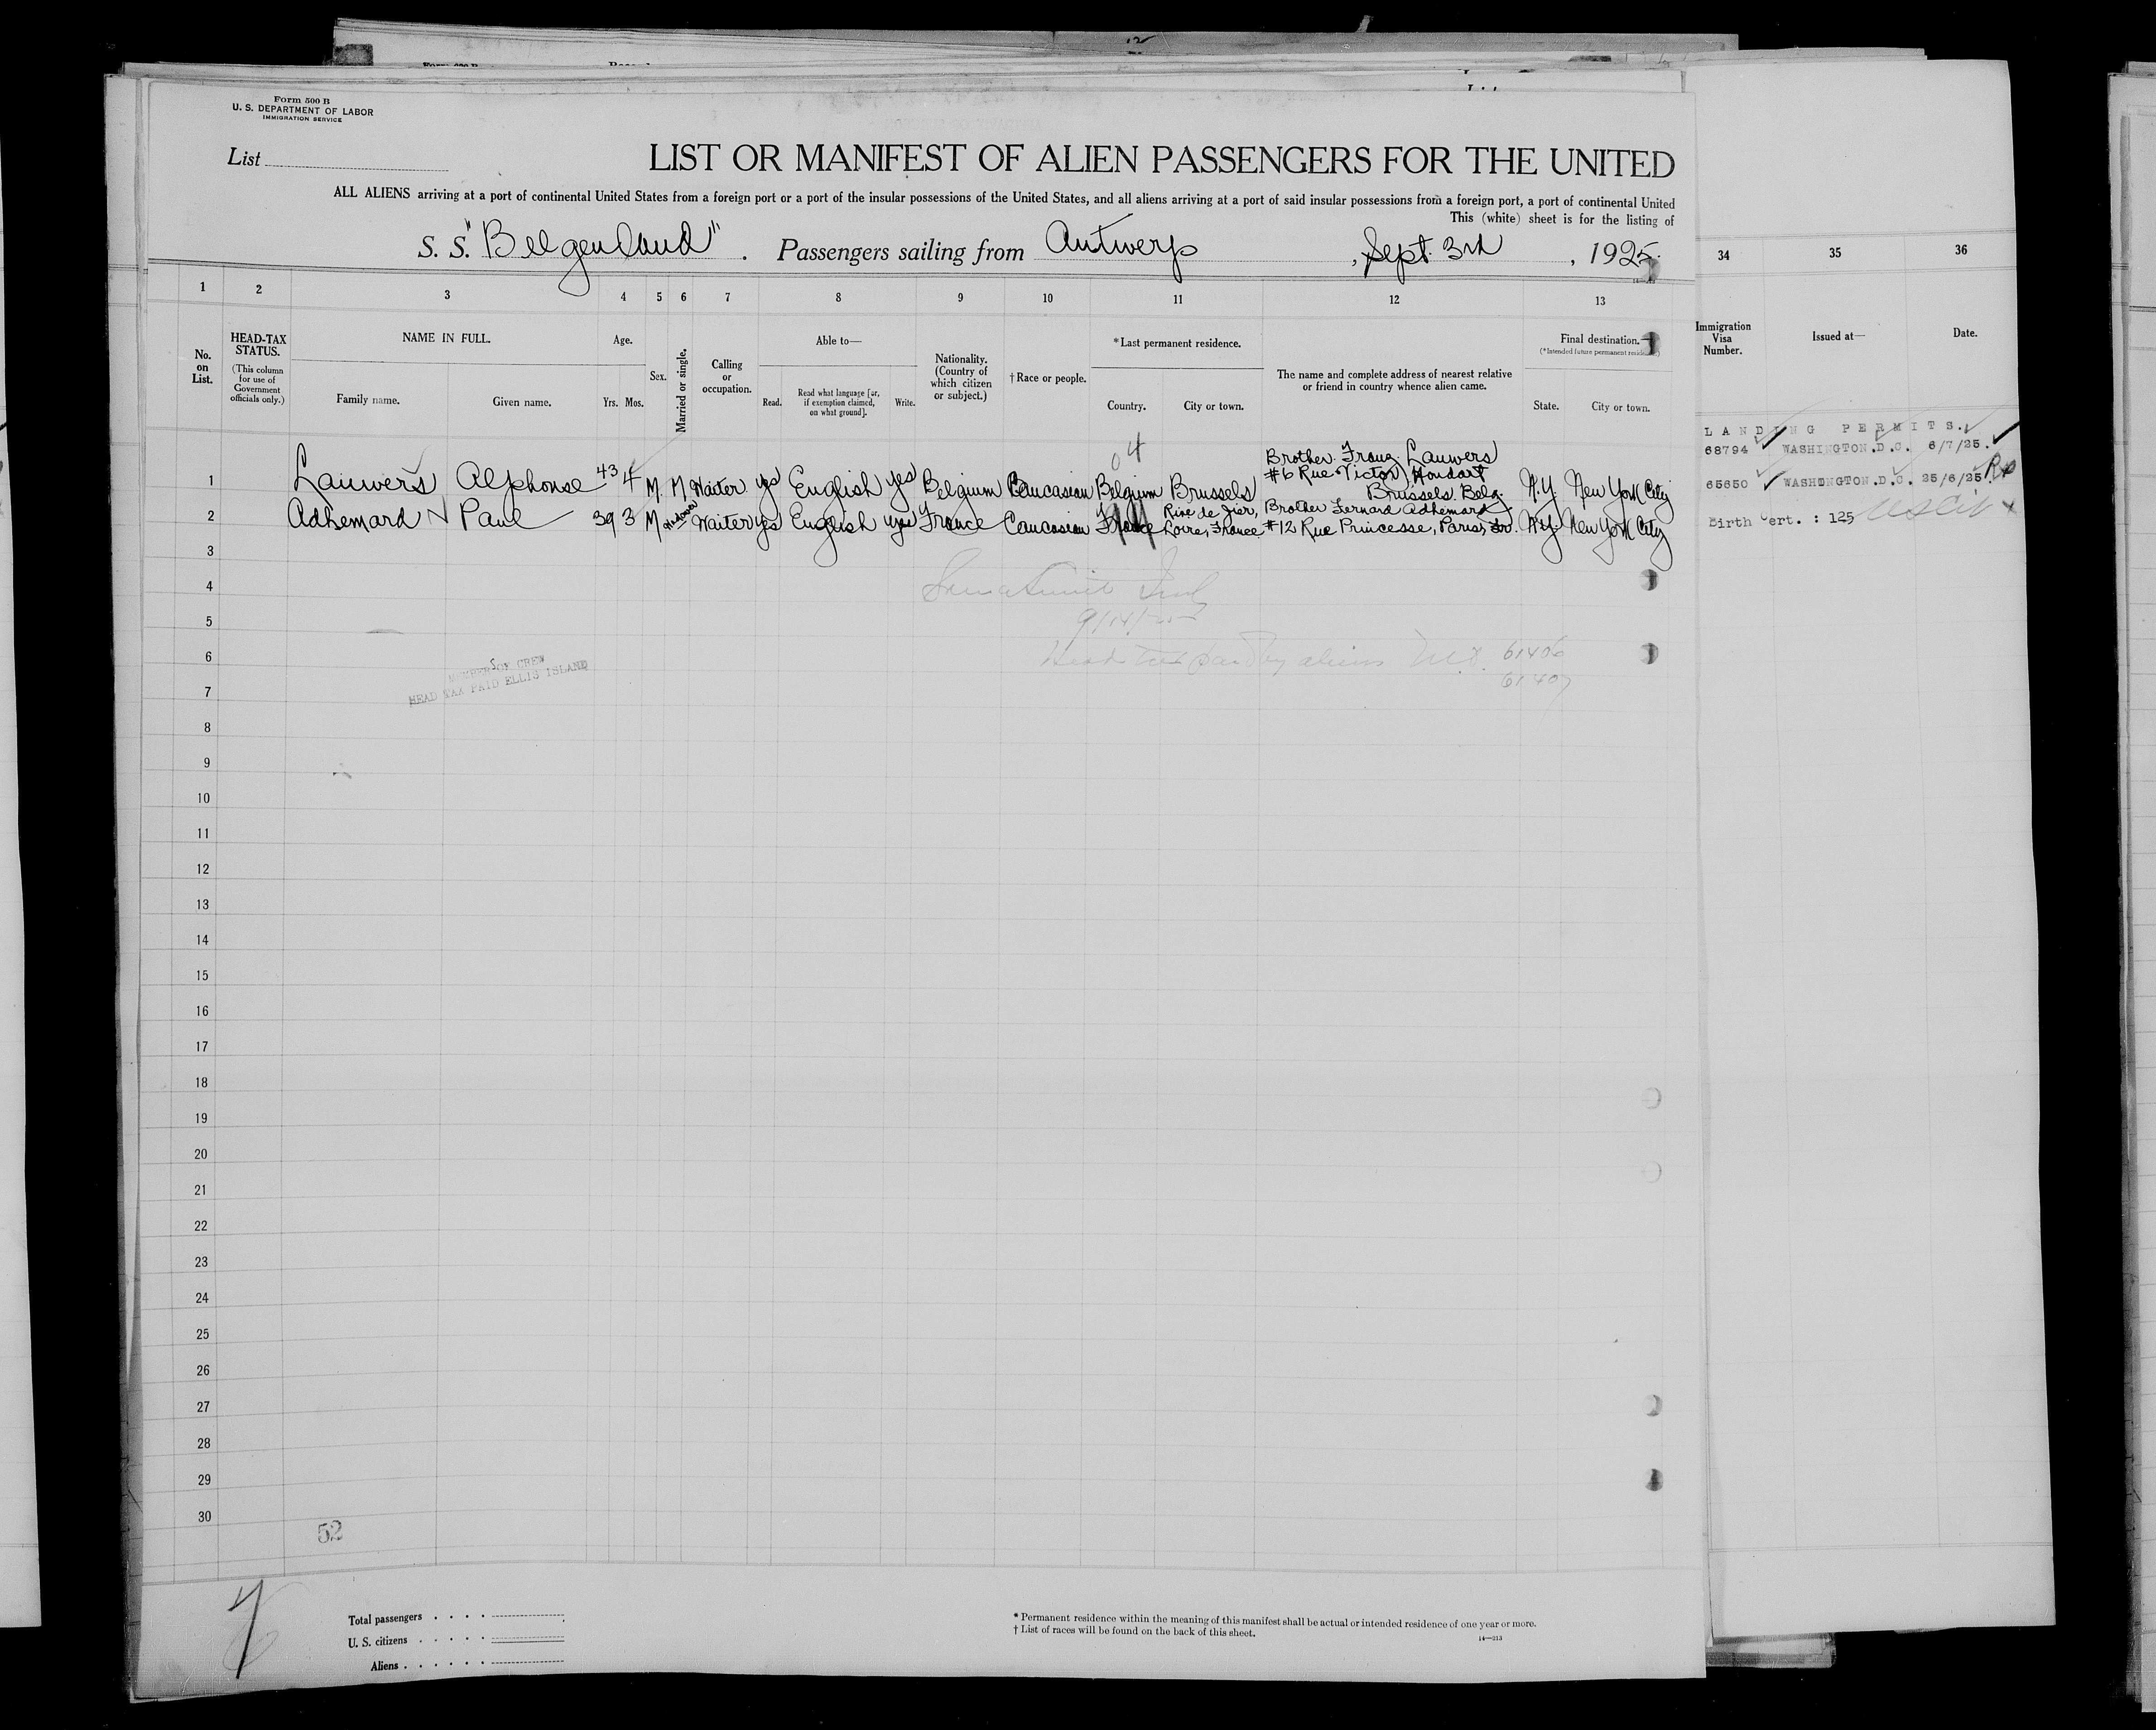 Form 500 B
U. S. DEPARTMENT OF LABOR
IMMIGRATION SERVICE
List
LIST OR MANIFEST OF ALIEN PASSENGERS FOR THE UNITED
ALL ALIENS arriving at a port of continental United States from a foreign port or a port of the insular possessions of the United States, and all aliens arriving at a port of said insular possessions from a foreign port, a port of continental United
This (white) sheet is for the listing of
S. S. "Belgenland". Passengers sailing from Antwerp, Sept. 3rd, 1925.
1 2 3 4 5 6 7 8 9 10 11 12 13 34 35 36
No. on List.
HEAD-TAX STATUS.
(This column for use of Government officials only.)
NAME IN FULL.
Family name. Given name.
Age.
Yrs. Mos.
Sex.
Married or single.
Calling or occupation.
Able to—
Read. Read what language [or, if exemption claimed, on what ground]. Write.
Nationality. (Country of which citizen or subject.)
† Race or people.
*Last permanent residence.
Country. City or town.
The name and complete address of nearest relative or friend in country whence alien came.
Final destination.
State. City or town.
Immigration Visa Number.
Issued at—
Date.
LANDING PERMITS.
04
1 Lauwers Alphonse 43 4 M M Waiter yes English yes Belgium Caucasian Belgium Brussels Brother Franz Lauwers #6 Rue Victor Brussels Belg. N.Y. New York City 68794 WASHINGTON.D.C. 6/7/25.
2 Adhemard Paul 39 3 M Waiter yes English yes France Caucasian France Rive de Gier, Loire, France Brother Fernard Adhemard #12 Rue Princesse, Paris, Fr. N.Y. New York City 65650 WASHINGTON.D.C. 25/6/25
Birth Cert. : 125
3
4
5
6 61406
7 61407
MEMBERS OF CREW
HEAD TAX PAID ELLIS ISLAND
8
9
10
11
12
13
14
15
16
17
18
19
20
21
22
23
24
25
26
27
28
29
30
52
Total passengers
U. S. citizens
Aliens
* Permanent residence within the meaning of this manifest shall be actual or intended residence of one year or more.
† List of races will be found on the back of this sheet.
14—313